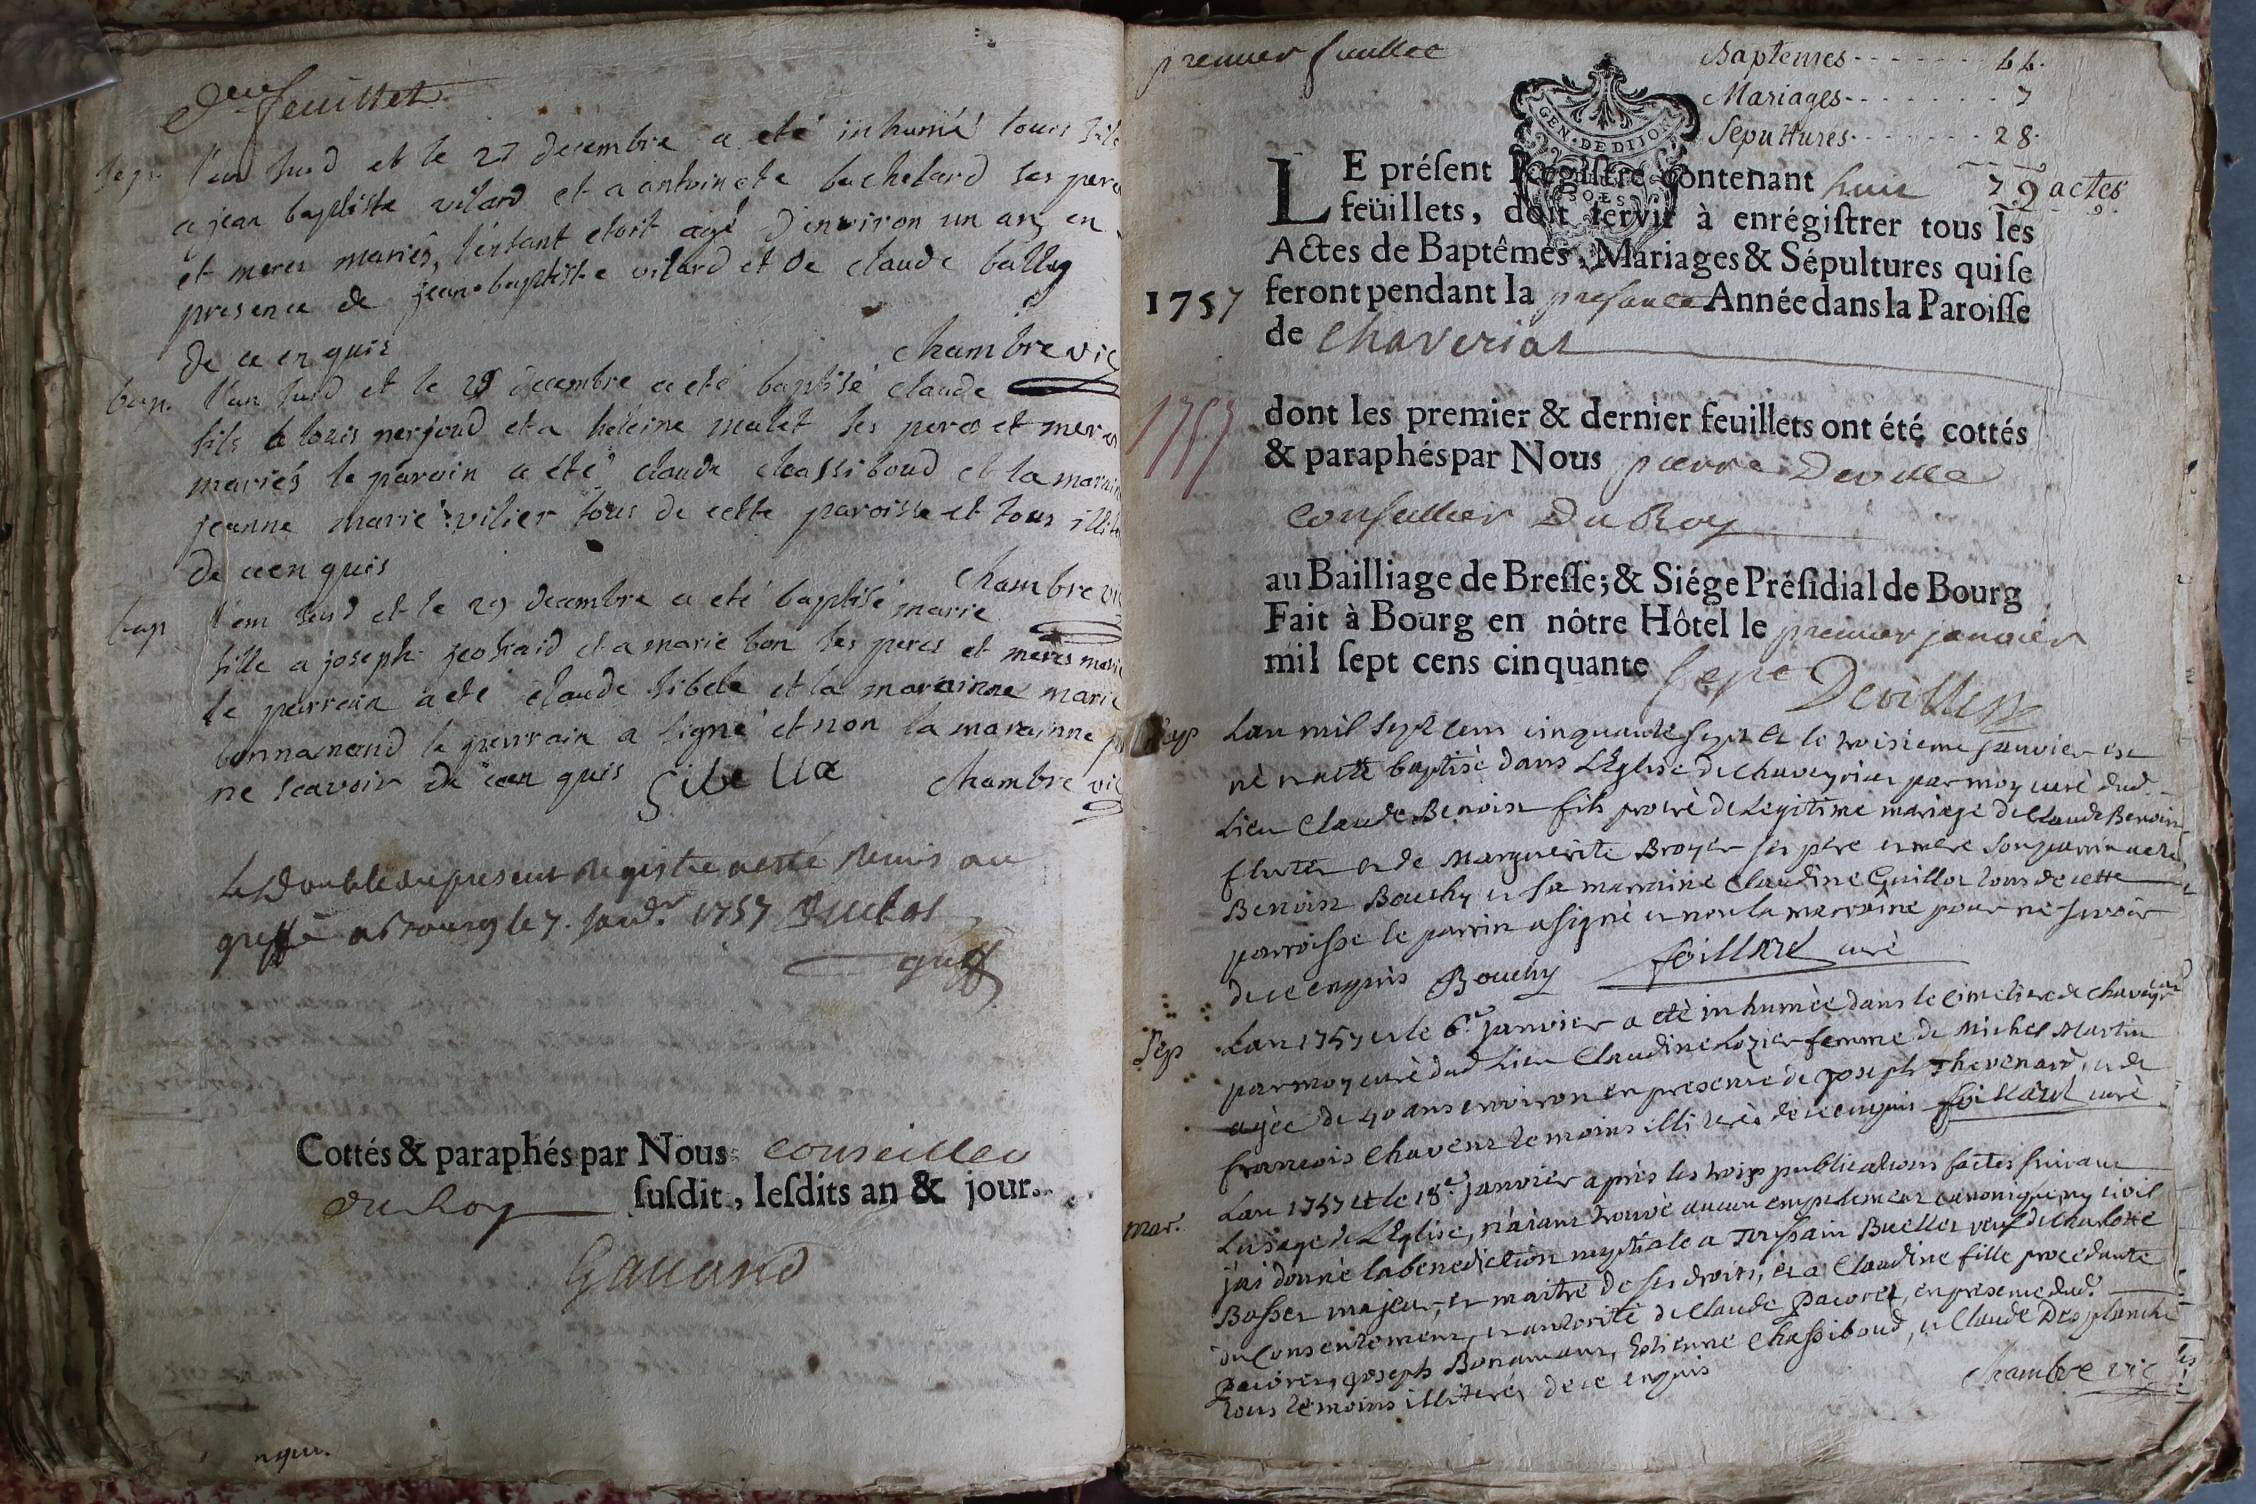 feuillet
sep. l'an susd et le 27 decembre a eté inhumé louis fils
a jean baptiste vilard et a antoinete bachelard ses pere
et meres mariés, l'enfant etoit agé d'environ un an, en
presence de jean-baptiste vilard et de claude
de ce enquis chambre vic
bap. l'an susd et le 28 decembre a eté baptisé claude
fils a louis nerjoud et a heleine malet ses peres et meres
mariés le parain a été claude chassiboud et la marain
jeanne marie vilier tous de cette paroisse et tous
de ceenquis chambre vic
bap l'an susd et le 29 decembre a eté baptisé marie
fille a joseph et a marie bon ses peres et meres
le parrain a eté claude sibele et la marainne marie
bonnamand le parrain a signé et non la marainne
ne scavoir de ceenquis Sibella chambre vic
Le double du present Registre a esté remis au
greffe a Bourg le 7. 1757
greff
Cottés & paraphés par Nous conseiller
du Roy susdit, lesdits an & jour.
premier feuillet
Baptemes - - - - - - - 44.
Mariages - - - - - - - 7
Sepultures - - - - - - - 28.
79 actes
GEN. DE DIJON
SOLS
LE présent Registre contenant huit
feüillets, doit servir à enrégistrer tous les
Actes de Baptêmes, Mariages & Sépultures qui se
1757 feront pendant la presante Année dans la Paroisse
de Chaveriat
1757 dont les premier & dernier feuillets ont été cottés
& paraphés par Nous pierre Deville
Conseiller Du Roy
au Bailliage de Bresse; & Siége Présidial de Bourg
Fait à Bourg en nôtre Hôtel le premier janvier
mil sept cens cinquante sept
Bap Lan mil sept cent cinquante sept et le troisieme janvier est
né et a été baptisé dans L'Eglise de Chaveyriat par moy curé dud.
Lieu Claude Benoist fils procréé de Legitime mariage de Claude Benoist
et de Marguerite Broyer ses père et mere son parrain a eté
Benoist Bouchy et sa marraine Claudine Guillot tous de cette
parroisse le parrin a signé et non la marraine pour ne savoir
de ce enquis Bouchy foillard curé
Sep Lan 1757 et le 6.e janvier a eté inhumée dans le Cimetiere de Chaveyriat
par moy curé dud Lieu Claudine Lozier femme de Michel Martin
agée de 40 ans environ en presence de joseph Thevenard, et de
françois Chavent temoins illiterés de ce enquis foillard curé
mar. Lan 1757 et le 18.e janvier après les trois publications faites suivant
Lusage de L'Eglise, n'aiant trouvé aucun empechement canonique ny civil
j'ai donné la benediction nuptiale a Toussain Buellet veuf de Charlotte
Bosset majeur, et maitre de ses droits, et a Claudine fille procedante
du Consentement, et autorité de Claude Pacoret, en presence dud.
Pacoret, joseph Bonamant, Etienne Chassiboud, et Claude Desplanche
tous temoins illiterés de ce enquis chambre vic